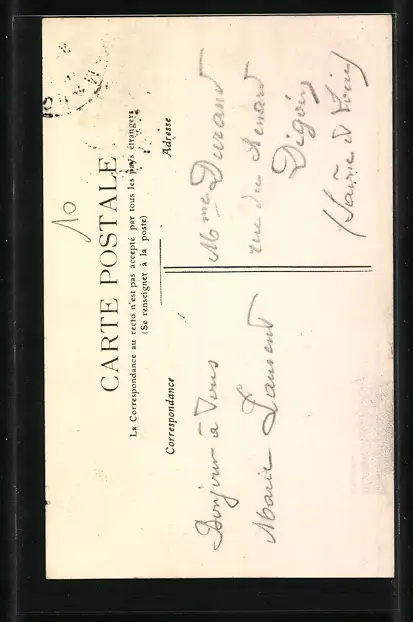 10
CARTE POSTALE
LA Correspondance au recto n'est pas accepté par tous les pays étrangers
(Se renseigner à la poste)
Correspondance
Bonjour à Vous
Marie Laurent
Adresse
Mme Durand
rue du Renard
Digoin
(Saône et Loire)